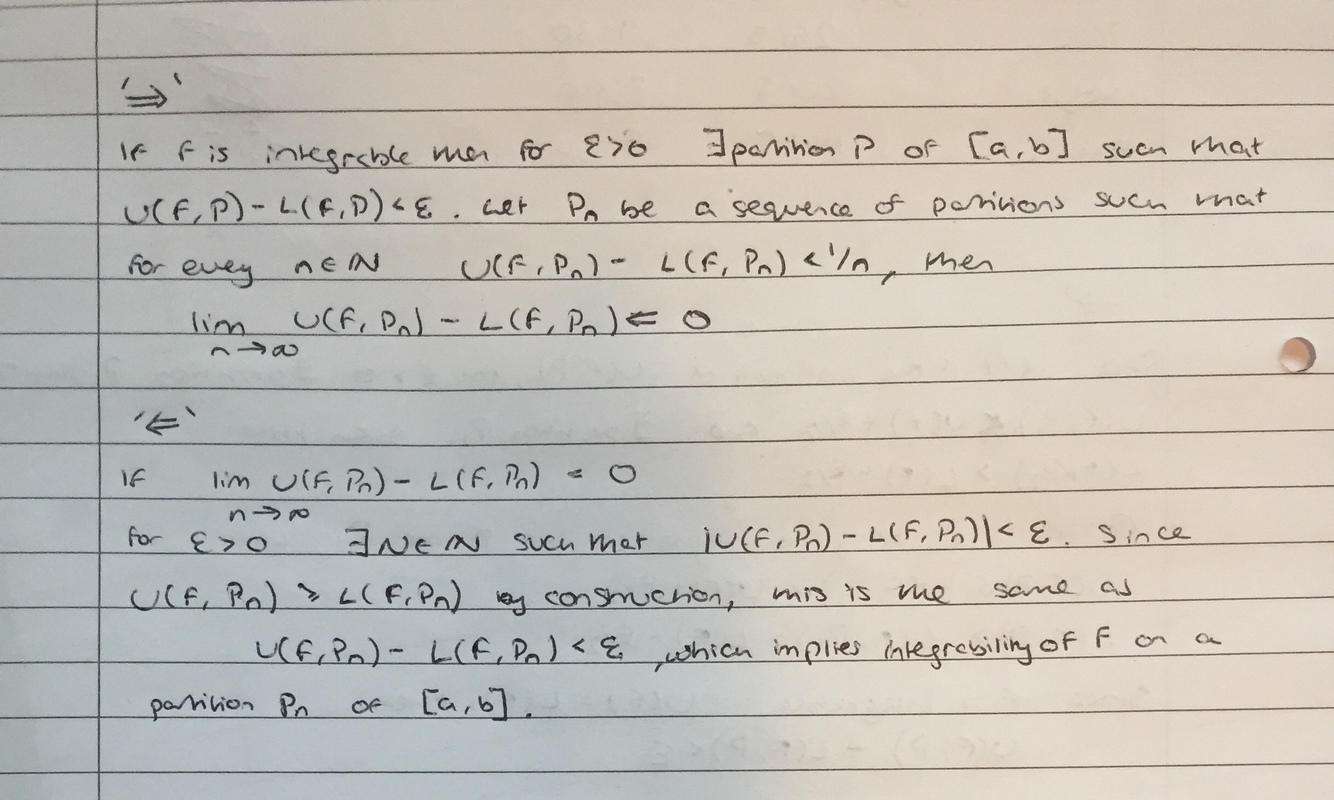 '⇒'
If f is integrable then for ε>0 ∃ partition P of [a,b] such that
U(f,P) - L(f,P) < ε. Let Pn be a sequence of partitions such that
for every n∈ℕ U(f,Pn) - L(f,Pn) < 1/n, then
lim U(f,Pn) - L(f,Pn) = 0
n→∞
'⇐'
If lim U(f,Pn) - L(f,Pn) = 0
n→∞
for ε>0 ∃N∈ℕ such that |U(f,Pn) - L(f,Pn)| < ε. Since
U(f,Pn) ≥ L(f,Pn) by construction, this is the same as
U(f,Pn) - L(f,Pn) < ε, which implies integrability of f on a
partition Pn of [a,b].